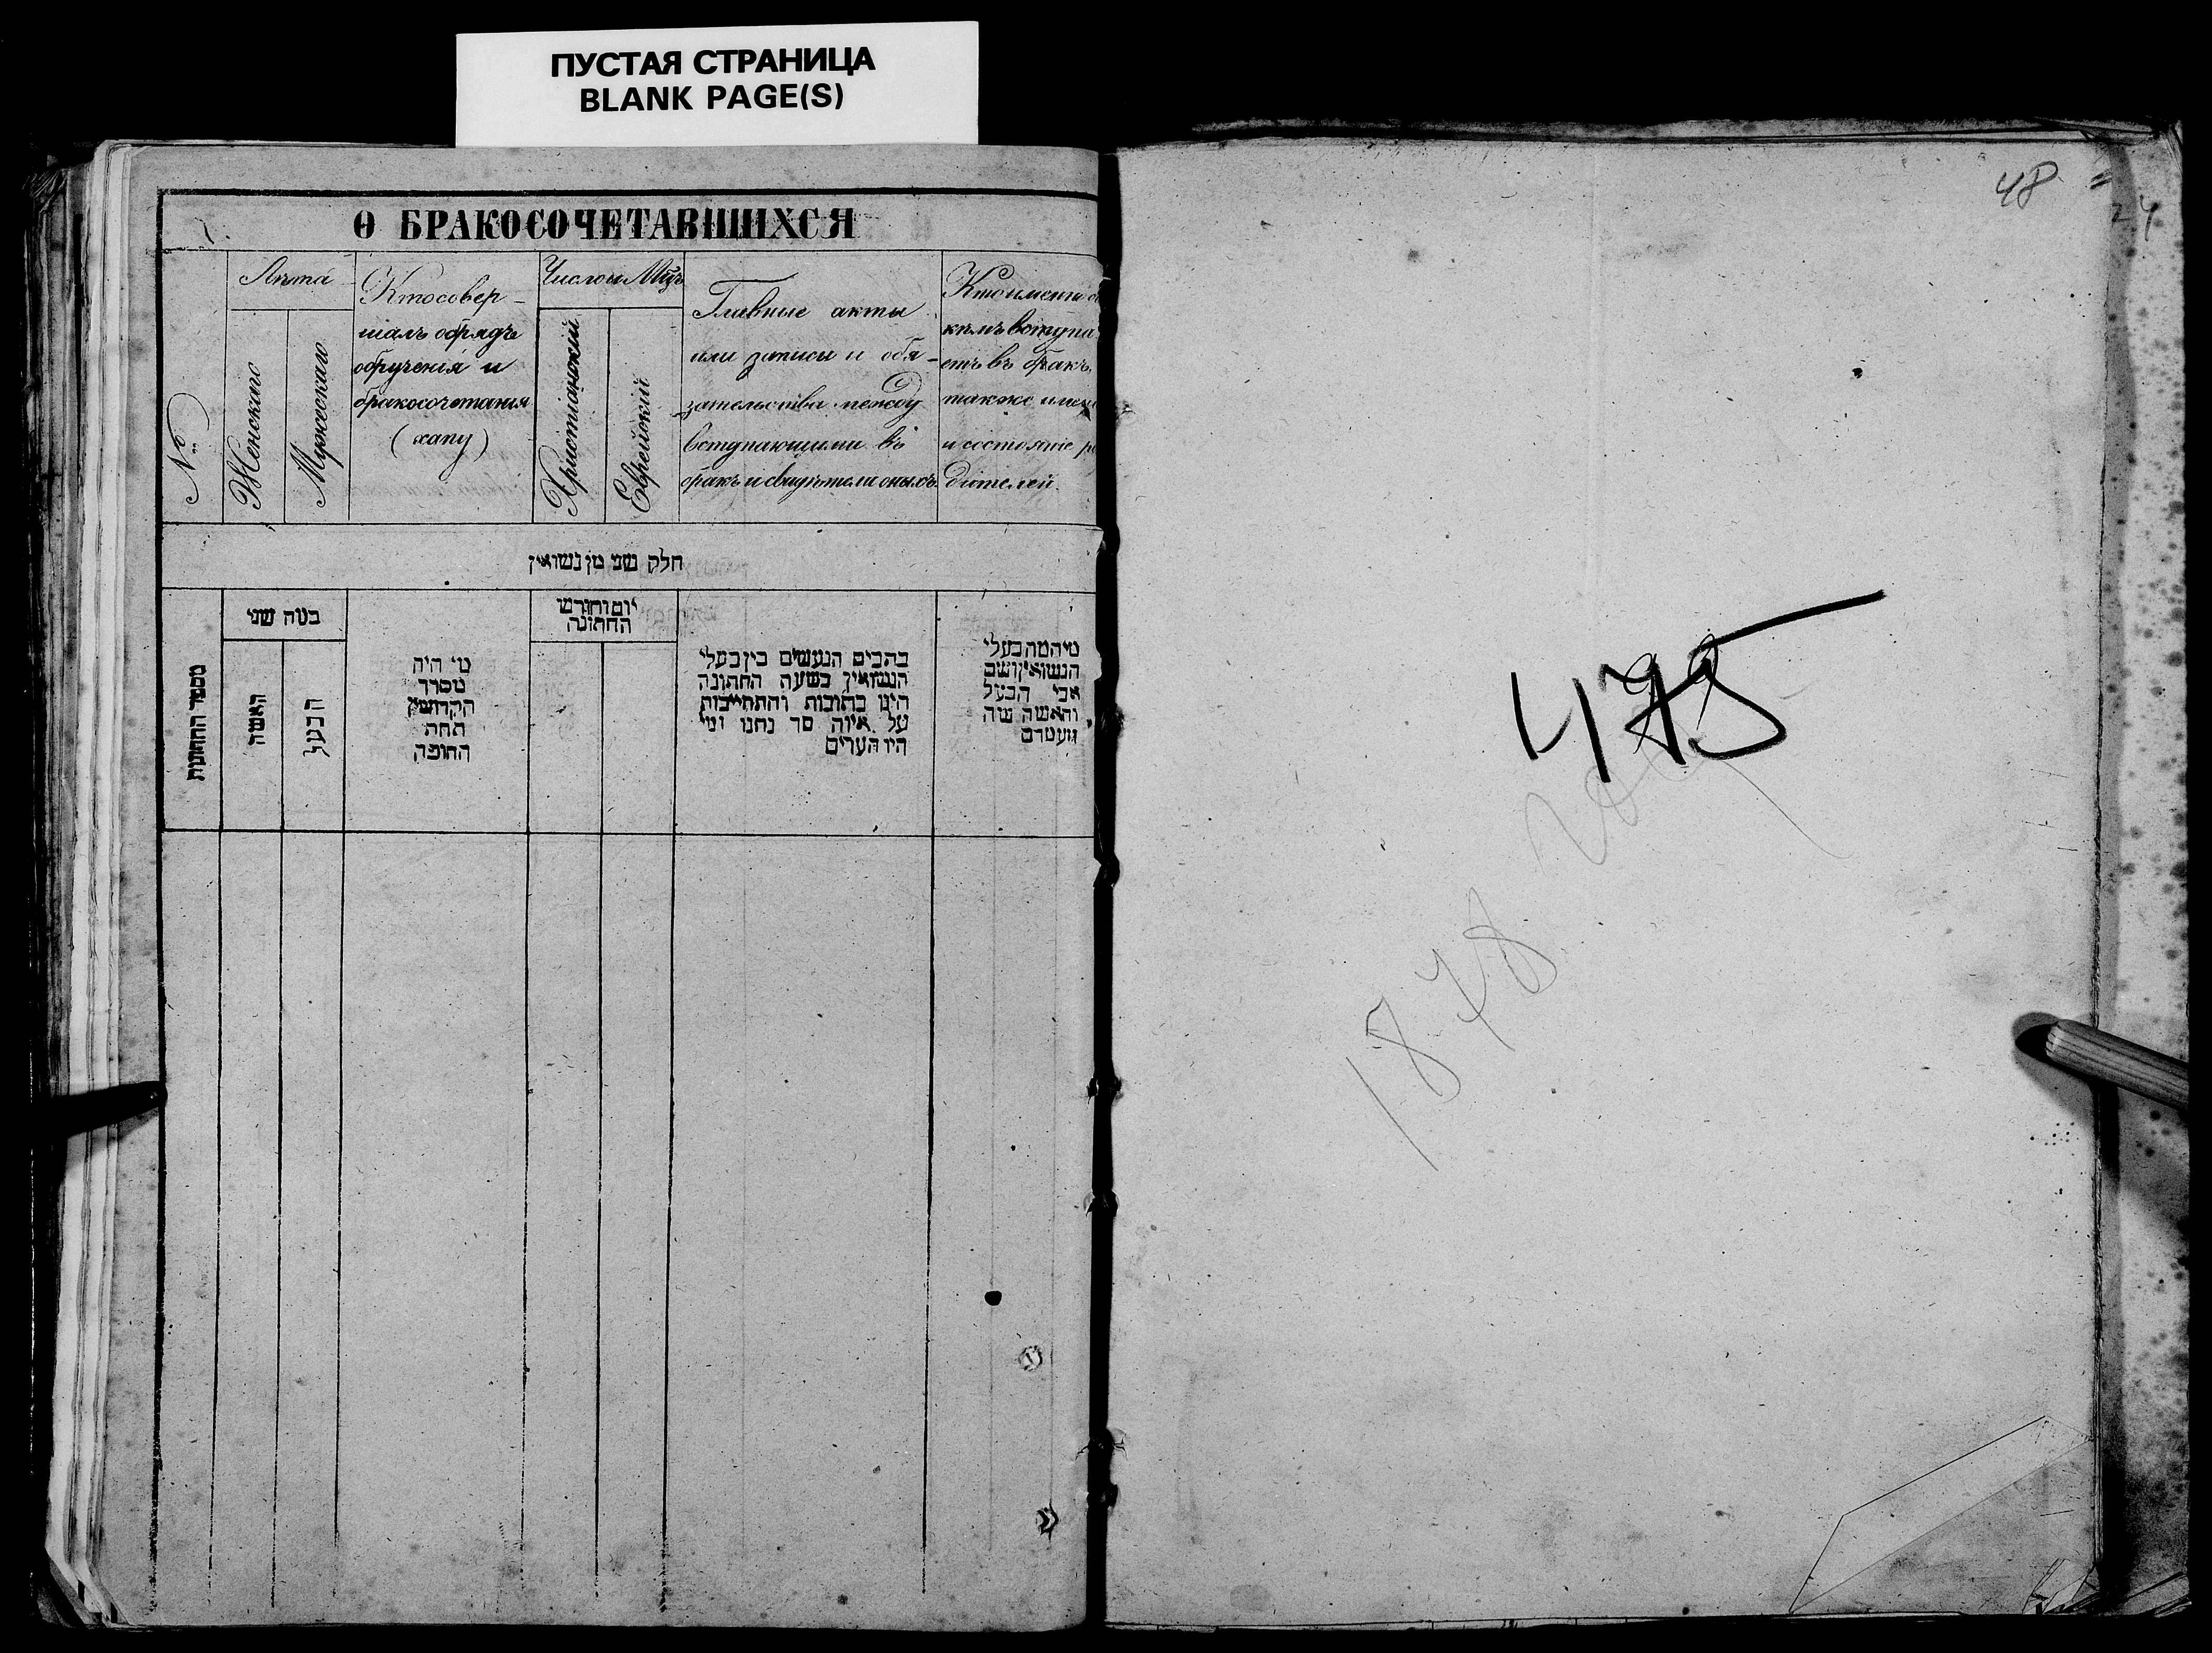 ПУСТАЯ СТРАНИЦА
BLANK PAGE(S)
О БРАКОСОЧЕТАВШИХСЯ
№
Лѣта
Женскаго
Мужескаго
Кто совер-
шалъ обрядъ
обрученія и
бракосочетанія
(хапу)
Число и Мцъ
Христіанскій
Еврейскій
Главные акты
или записи и обя-
зательства между
вступающими въ
бракъ и свидѣтели оныхъ.
Кто именно
кѣмъ вступа
етъ въ бракъ,
также имена
и состояніе ро
дителей.
חלק שני מן נשואין
מספר החתונות
במה שני
האשה
הבעל
מי היה
מסדר
הקדושין
תחת
החופה
יום וחודש
החתונה
בתבים הנעשים בין בעלי
הנשואין בשעה החתונה
היינו כתובות והתחייבות
על איזה סך נתנו ומי
היו העדים
מיהמה בעלי
הנשואין ושם
אבי הבעל
והאשה ומה
מעמדם
48
24
1878